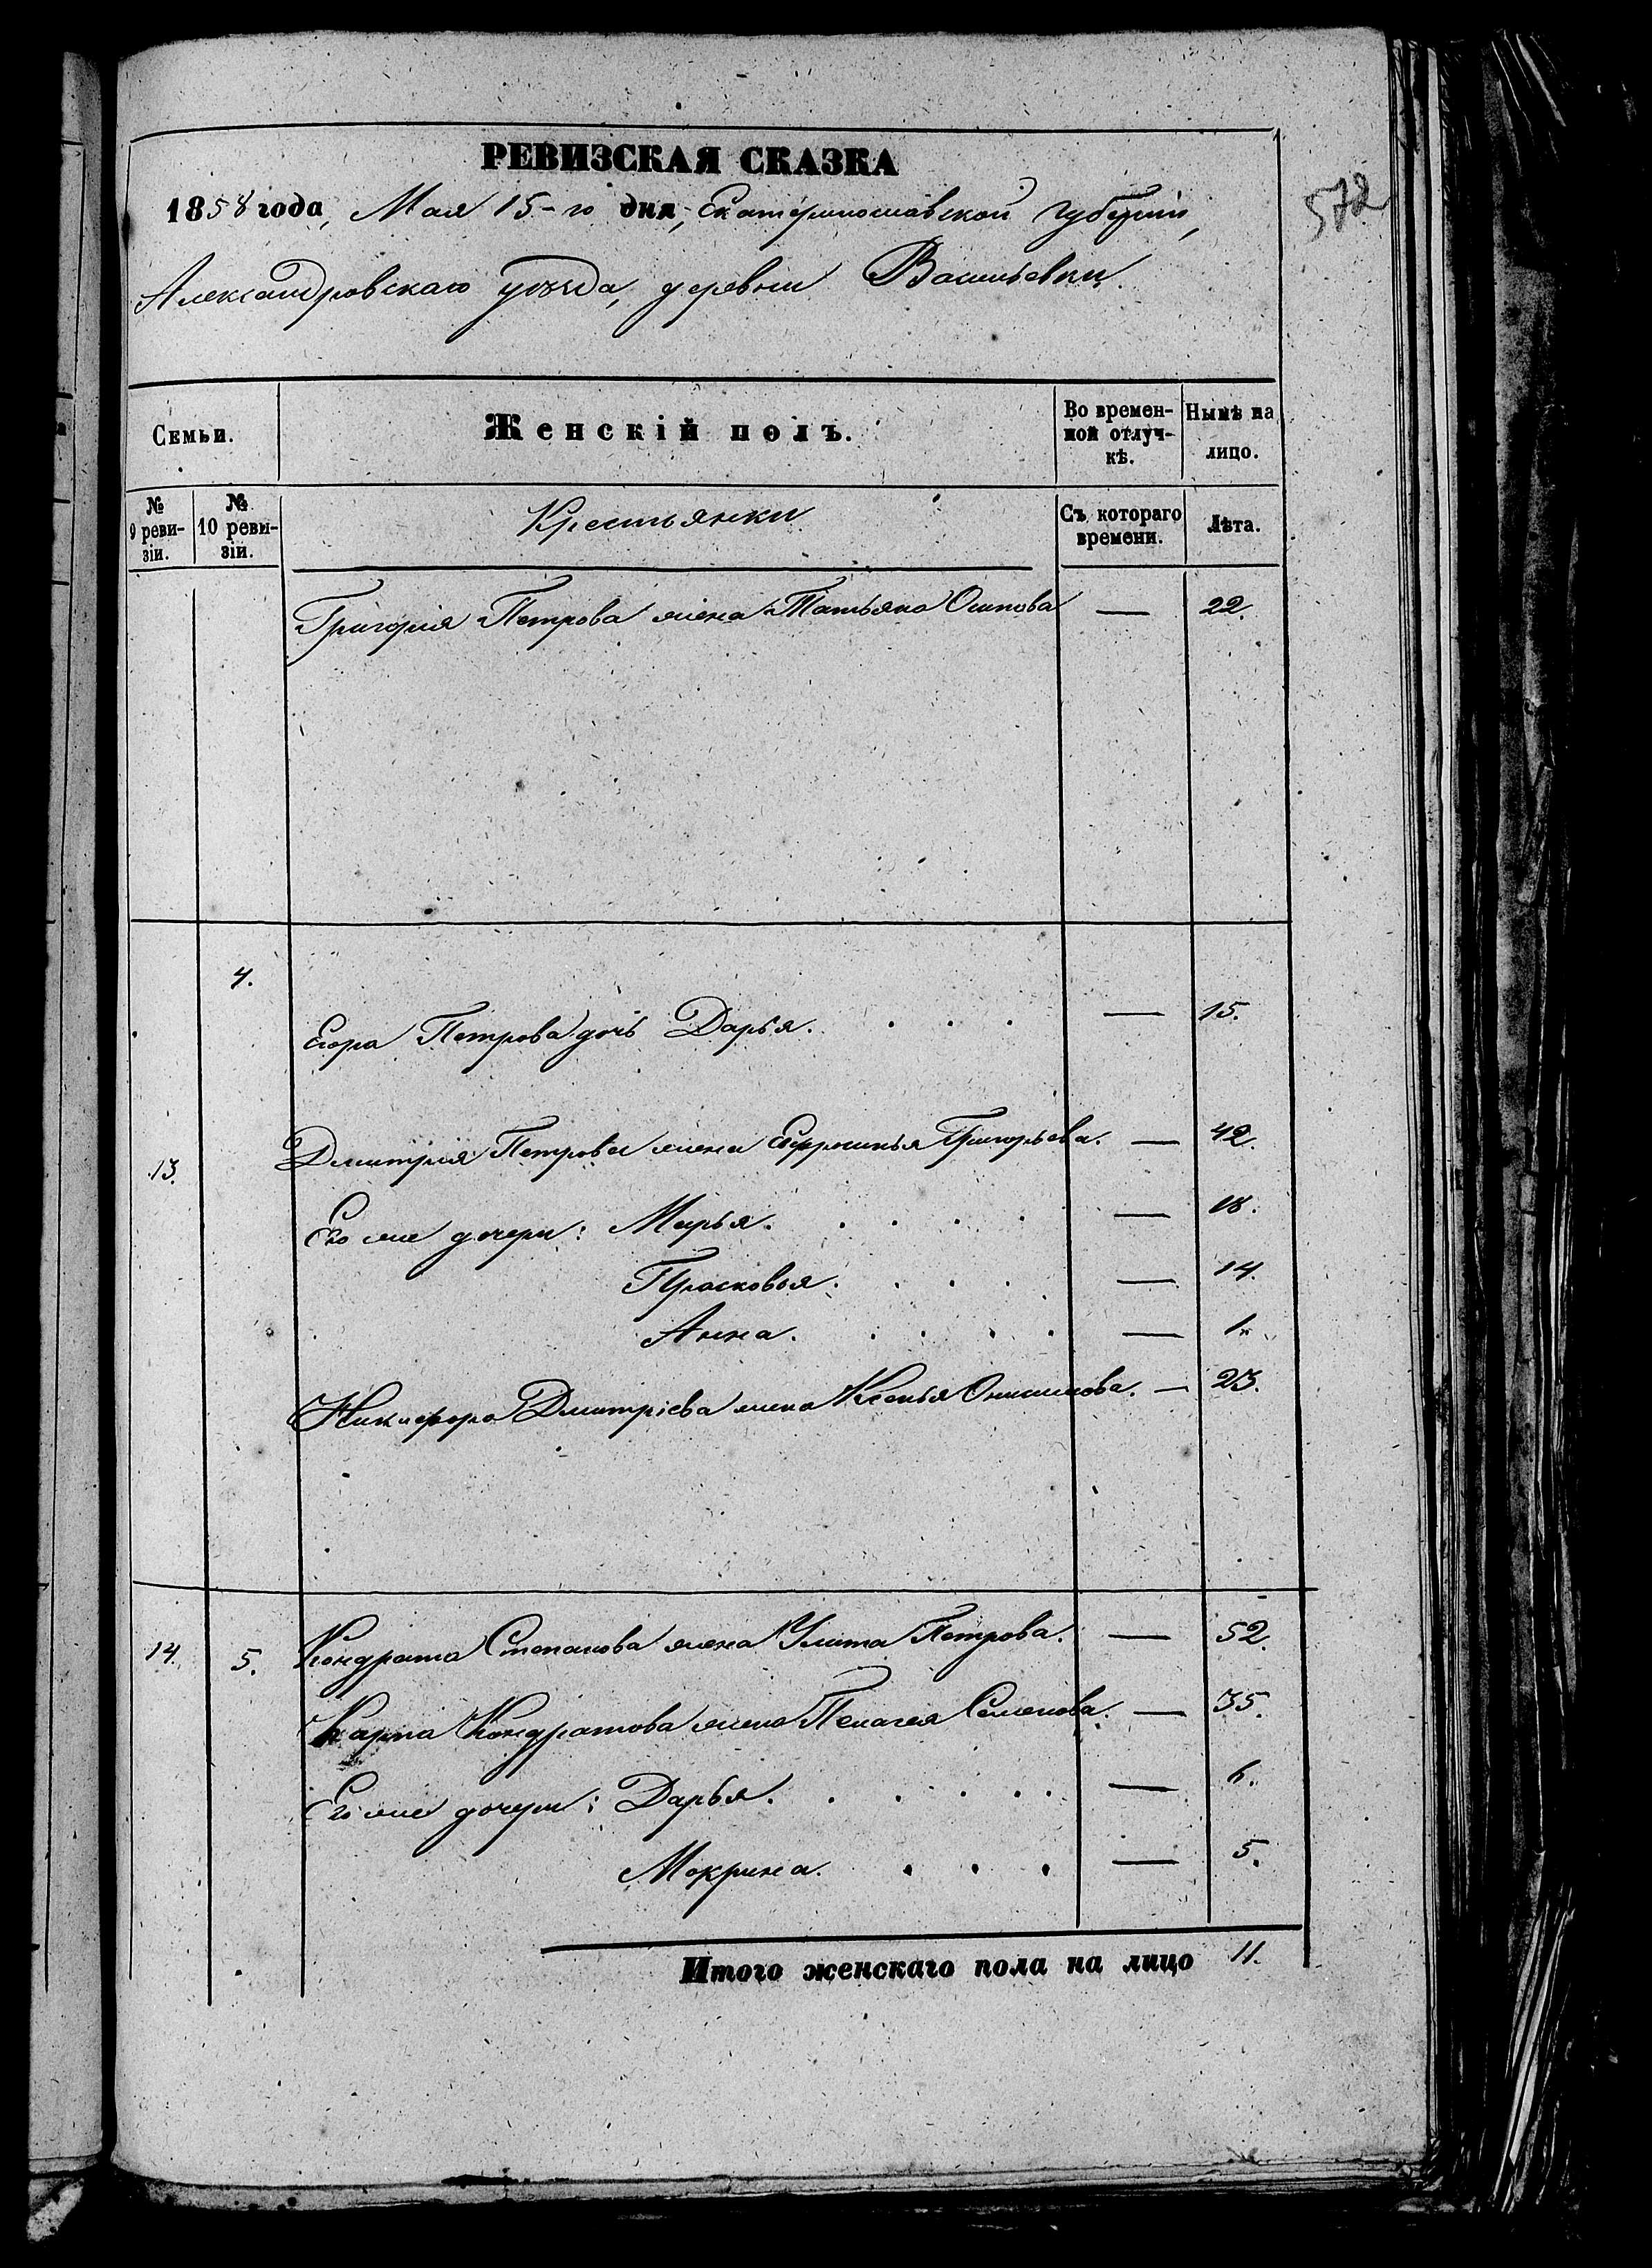 РЕВИЗСКАЯ СКАЗКА
572
1858 года, Мая 15-го дня, Екатеринославской губерніи,
Александровскаго уѣзда, деревни Васильевки.
Семьи.
Женскій полъ.
Во времен-
ной отлуч-
кѣ.
Нынѣ на
лицо.
№
9 реви-
зіи.
№
10 реви-
зіи.
Крестьянки
Съ котораго
времени.
Лѣта.
Григорія Петрова жена Татьяна Осипова — 22.
4.
Егора Петрова дочь Дарья. . . . — 15.
13. Дмитрія Петрова жена Ефросинья Григорьева. — 42.
Его же дочери: Марья. . . . . — 18.
Прасковья. . . . — 14.
Анна. . . . . — 1.
Никифора Дмитріева жена Ксенья Онисимова. — 23.
14. 5. Кондрата Степанова жена Улита Петрова. — 52.
Карпа Кондратова жена Пелагея Семенова. — 35.
Его же дочери: Дарья. . . . . . — 6.
Мокрина. . . . — 5.
Итого женскаго пола на лицо 11.